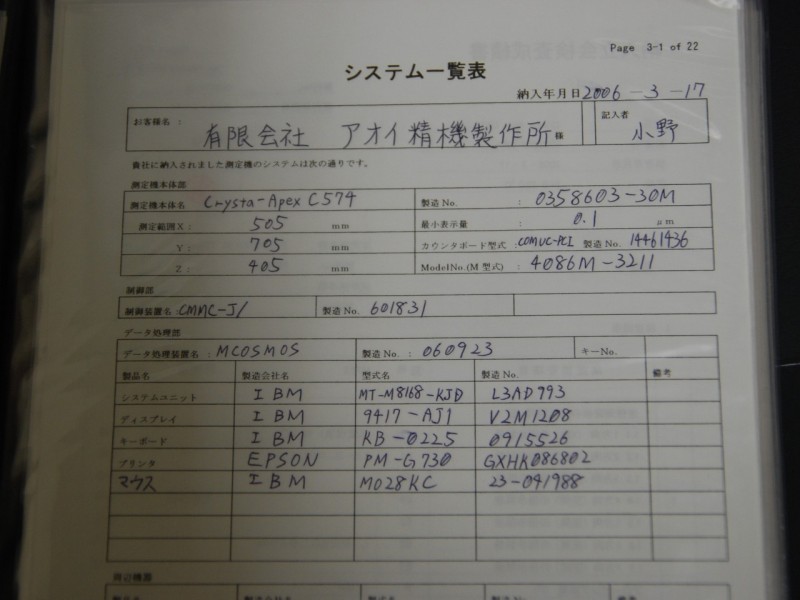 Page 3-1 of 22
システム一覧表
納入年月日 2006-3-17
お客様名： 有限会社 アオイ精機製作所 様 記入者 小野
貴社に納入されました測定機のシステムは次の通りです。
測定機本体部
測定機本体名 Crysta-Apex C574 製造No. : 0358603-30M
測定範囲X: 505 mm 最小表示量 : 0.1 μm
Y: 705 mm カウンタボード型式 : COMUC-PCI 製造No. 14461436
Z: 405 mm ModelNo.(M型式) : 4086M-3211
制御部
制御装置名: CMMC-J1 製造No. 601831
データ処理部
データ処理装置名: MCOSMOS 製造No. : 060923 キーNo.
製品名 製造会社名 型式名 製造No. 備考
システムユニット IBM MT-M8168-KJD L3AD793
ディスプレイ IBM 9417-AJ1 V2M1208
キーボード IBM KB-0225 0915526
プリンタ EPSON PM-G730 GXHK086802
マウス IBM MO28KC 23-041988
周辺機器
製品名 製造会社名 型式名 製造No. 備考